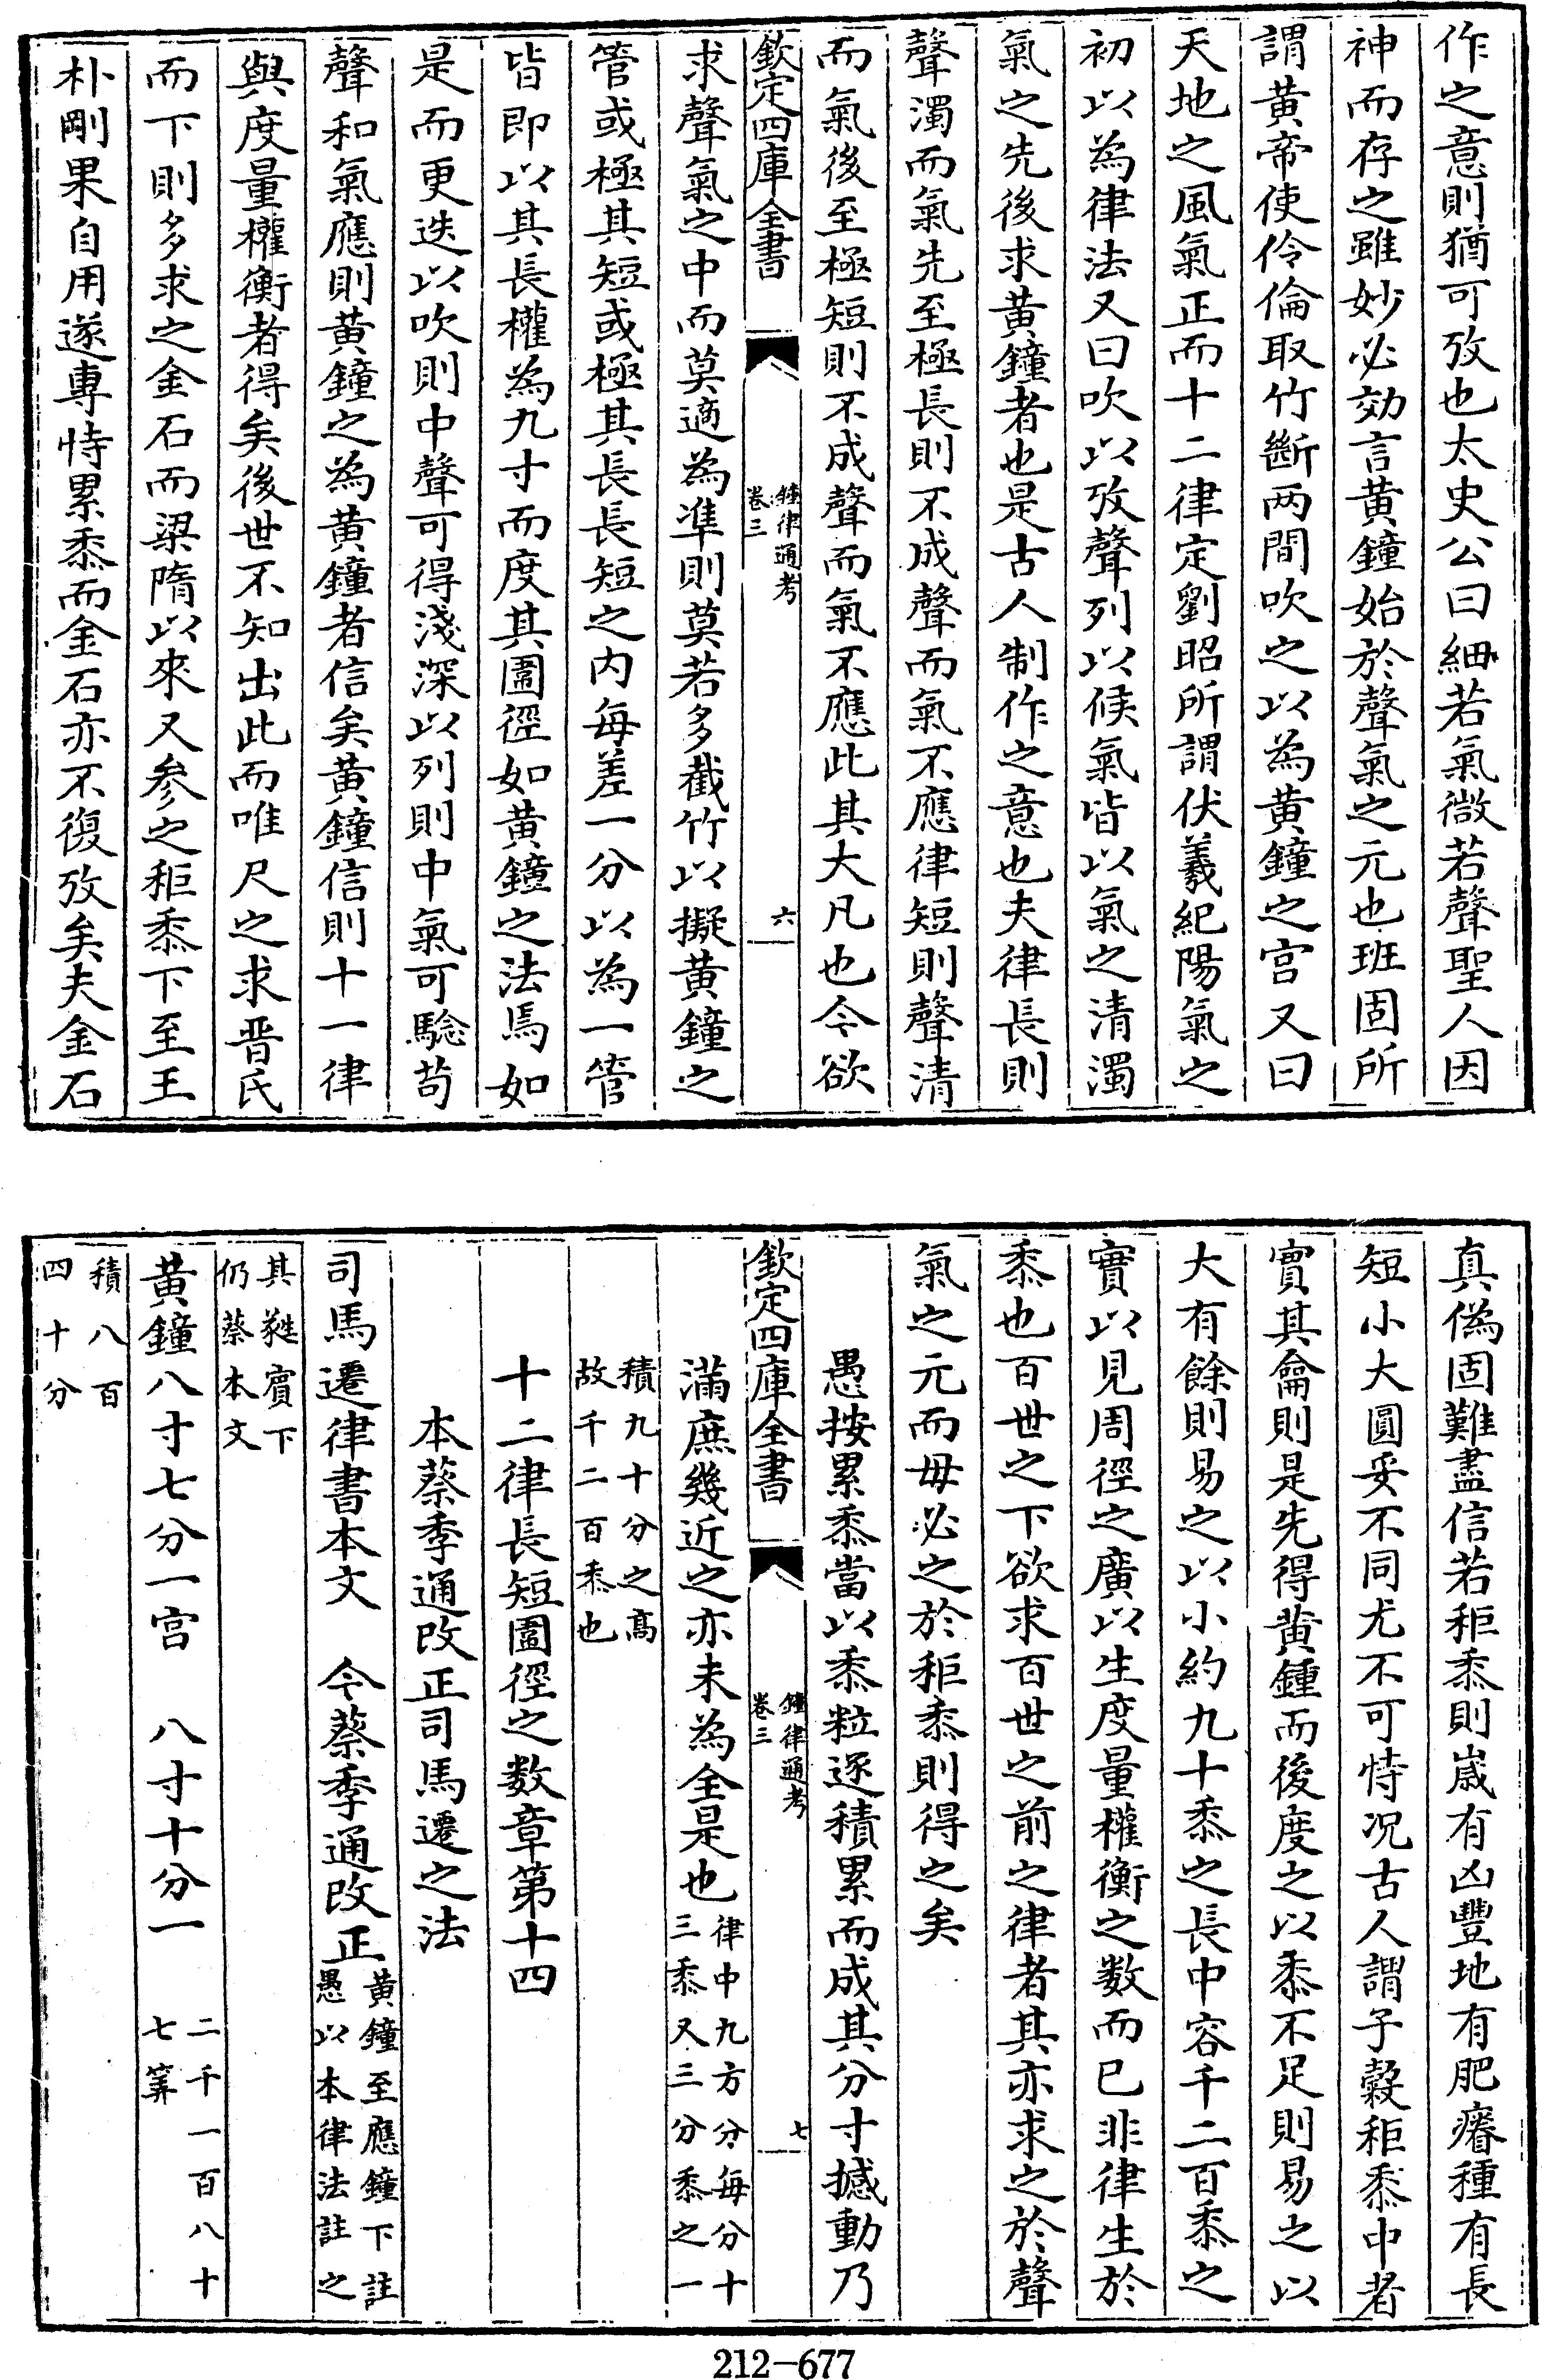 作之意則猶可攷也太史公曰細若氣微若聲聖人因
神而存之雖妙必効言黃鐘始於聲氣之元也班固所
謂黃帝使伶倫取竹斷两間吹之以為黃鐘之宫又曰
天地之風氣正而十二律定劉昭所謂伏羲紀陽氣之
初以為律法又曰吹以攷聲列以候氣皆以氣之清濁
氣之先後求黃鐘者也是古人制作之意也夫律長則
聲濁而氣先至極長則不成聲而氣不應律短則聲清
而氣後至極短則不成聲而氣不應此其大凡也今欲
欽定四庫全書
鐘律通考
卷三
六
求聲氣之中而莫適為準則莫若多截竹以擬黃鐘之
管或極其短或極其長長短之内每差一分以為一管
皆即以其長權為九寸而度其圍徑如黃鐘之法焉如
是而更迭以吹則中聲可得淺深以列則中氣可騐茍
聲和氣應則黃鐘之為黃鐘者信矣黃鐘信則十一律
與度量權衡者得矣後世不知出此而唯尺之求晋氏
而下則多求之金石而梁隋以來又参之秬黍下至王
朴剛果自用遂專恃累黍而金石亦不復攷矣夫金石
真偽固難盡信若秬黍則嵗有凶豐地有肥瘠種有長
短小大圓妥不同尤不可恃况古人謂子穀秬黍中者
實其龠則是先得黃鍾而後度之以黍不足則易之以
大有餘則易之以小約九十黍之長中容千二百黍之
實以見周徑之廣以生度量權衡之数而已非律生於
黍也百世之下欲求百世之前之律者其亦求之於聲
氣之元而毋必之於秬黍則得之矣
愚按累黍當以黍粒逐積累而成其分寸撼動乃
欽定四庫全書
鐘律通考
卷三
七
滿庶幾近之亦未為全是也律中九方分每分十
三黍又三分黍之一
積九十分之高
故千二百黍也
十二律長短圍徑之数章第十四
本蔡季通改正司馬遷之法
司馬遷律書本文　今蔡季通改正黃鐘至應鐘下註
愚以本律法註之
其蕤賓下
仍蔡本文
黃鐘八寸七分一宫　八寸十分一　二千一百八十
七筭
積八百
四十分
212-677